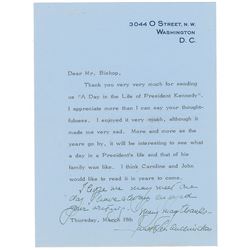 3044 O STREET, N.W.
WASHINGTON
D. C.
Dear Mr. Bishop,
Thank you very very much for sending
us "A Day in the Life of President Kennedy".
I appreciate more than I can say your thought-
fulness. I enjoyed it very much, although it
made me very sad. More and more as the
years go by, it will be interesting to see what
a day in a President's life and that of his
family was like. I think Caroline and John
would like to read it in years to come.
I hope we may meet one
day I have always enjoyed
your writing.
Many many thanks
Thursday, March 19th